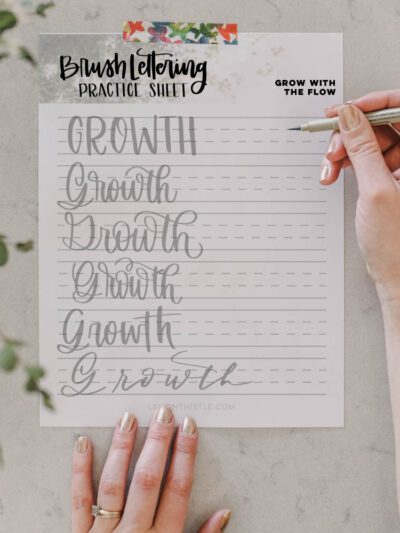 Brush Lettering
PRACTICE SHEET
GROW WITH
THE FLOW
GROWTH
Growth
Growth
Growth
Growth
Growth
LEMONTHISTLE.COM